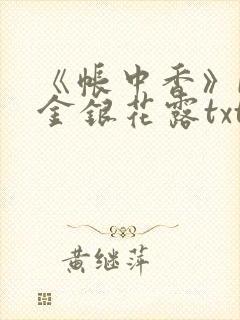 《帳中香》
金銀花露txt
黄继萍